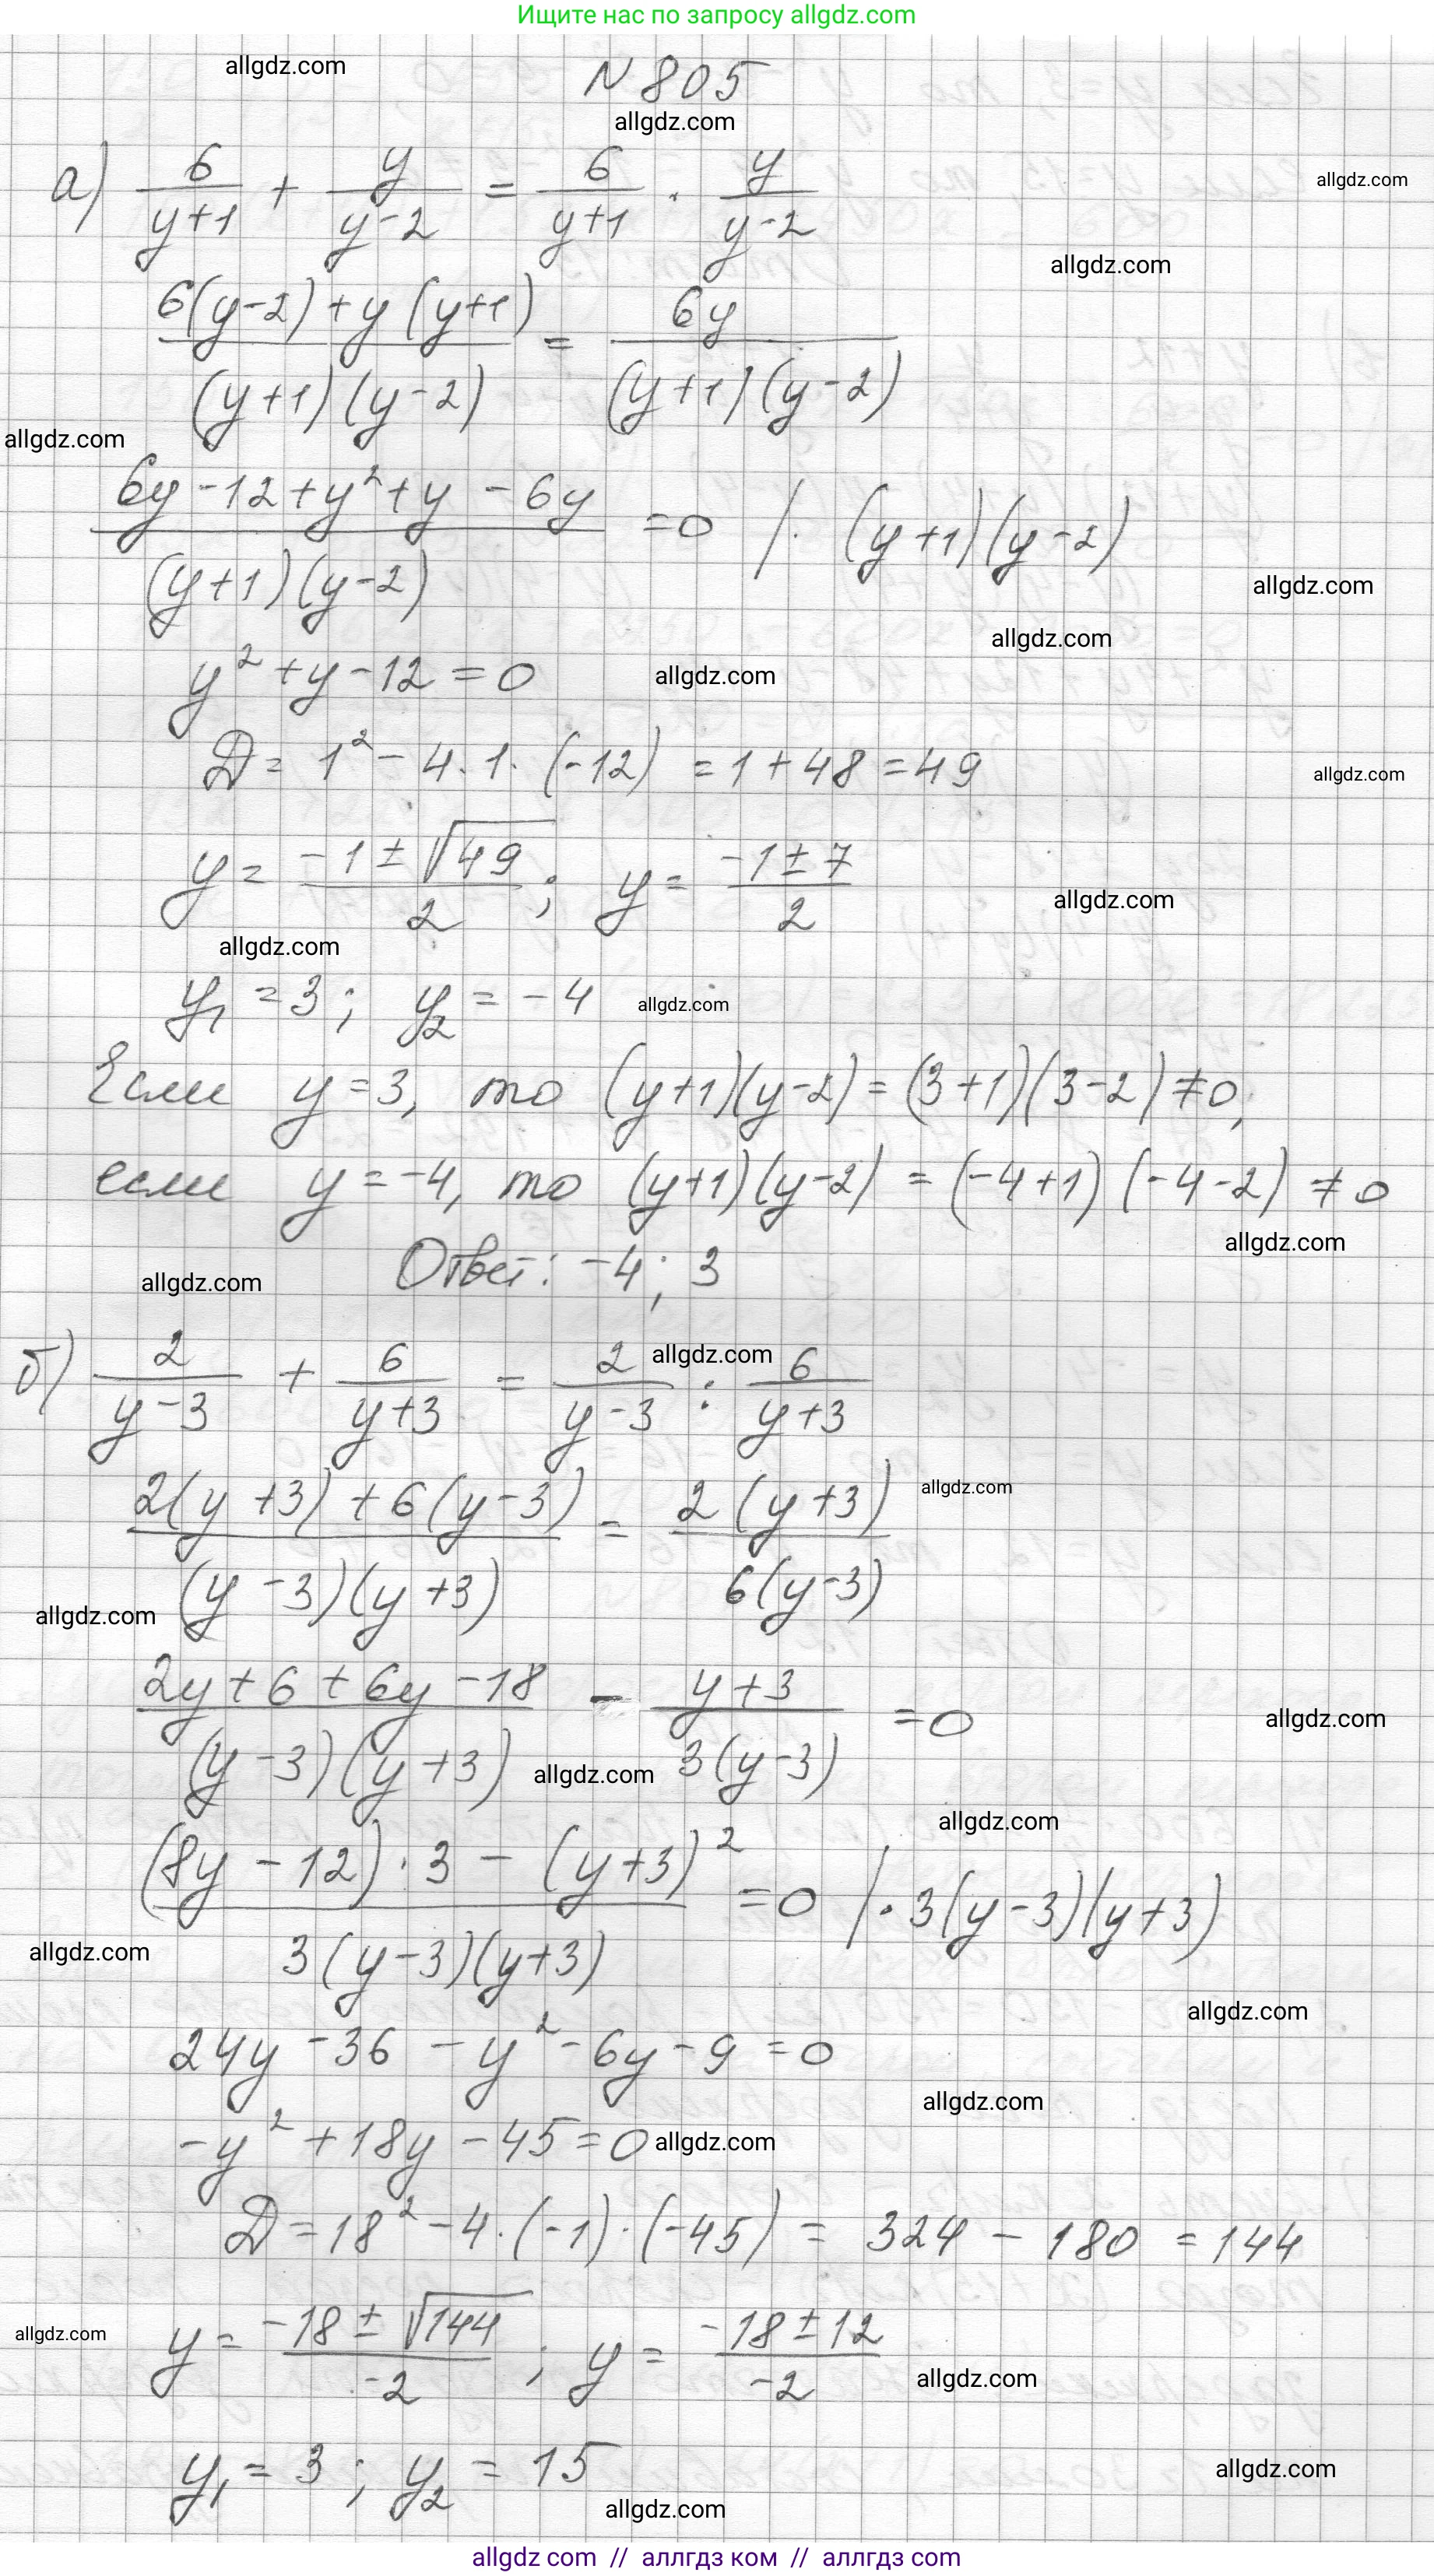 Ищите нас по запросу allgdz.com
allgdz.com
N 805
allgdz.com
а) 6/(y+1) + y/(y-2) = 6/(y+1) · y/(y-2)
allgdz.com
allgdz.com
(6(y-2)+y(y+1))/((y+1)(y-2)) = 6y/((y+1)(y-2))
allgdz.com
(6y-12+y²+y-6y)/((y+1)(y-2)) =0 /· (y+1)(y-2)
allgdz.com
allgdz.com
y²+y-12=0
allgdz.com
D= 1²-4·1·(-12) =1+48=49
allgdz.com
y= (-1±√49)/2; y= (-1±7)/2
allgdz.com
allgdz.com
y₁=3; y₂=-4
allgdz.com
Если y=3, то (y+1)(y-2)=(3+1)(3-2)≠0,
если y=-4, то (y+1)(y-2)=(-4+1)(-4-2)≠0
allgdz.com
Ответ: -4; 3
allgdz.com
allgdz.com
б) 2/(y-3) + 6/(y+3) = 2/(y-3) : 6/(y+3)
allgdz.com
(2(y+3)+6(y-3))/((y-3)(y+3)) = (2(y+3))/(6(y-3))
allgdz.com
(2y+6+6y-18)/((y-3)(y+3)) - (y+3)/(3(y-3)) =0
allgdz.com
allgdz.com
allgdz.com
((8y-12)·3-(y+3)²)/(3(y-3)(y+3)) =0 /·3(y-3)(y+3)
allgdz.com
allgdz.com
24y-36-y²-6y-9=0
allgdz.com
-y²+18y-45=0
allgdz.com
D=18²-4·(-1)·(-45)= 324-180=144
allgdz.com
y= (-18±√144)/-2; y= (-18±12)/-2
allgdz.com
y₁=3; y₂=15
allgdz.com
allgdz.com
allgdz com // аллгдз ком // аллгдз com